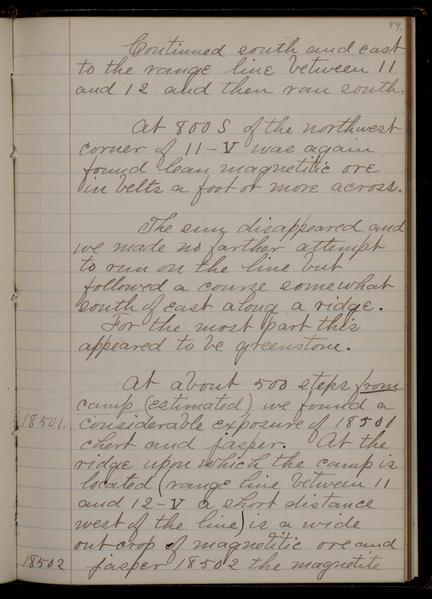 94.
Continued south and east
to the range line between 11
and 12 and then ran south.
At 800 S of the northwest
corner of 11-V was again
found lean magnetitic ore
in belts a foot or more across.
The sun disappeared and
we made no farther attempt
to run on the line but
followed a course somewhat
south of east along a ridge.
For the most part this
appeared to be greenstone.
At about 500 steps from
camp (estimated) we found a
18501. considerable exposure of 18501
chert and jasper. At the
ridge upon which the camp is
located (range line between 11
and 12-V a short distance
west of the line) is a wide
out crop of magnetitic ore and
18502 jasper 18502 the magnetite